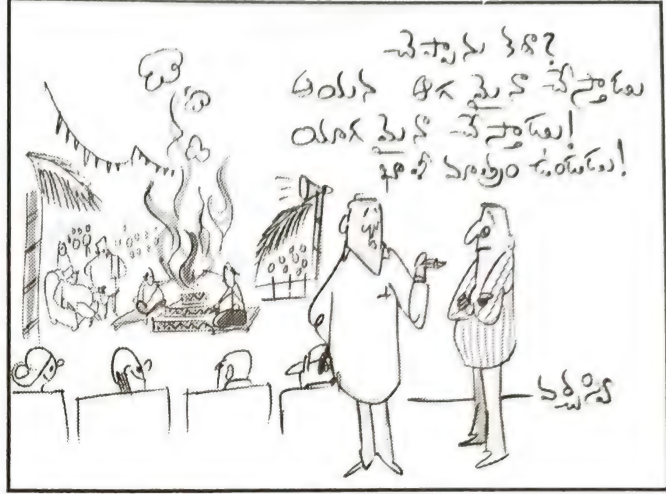 చెప్పాను కదా?
ఆయన ఆగమైనా చేస్తాడు
యాగమైనా చేస్తాడు!
ఖాళీ మాత్రం ఉండడు!
వర్చస్వి